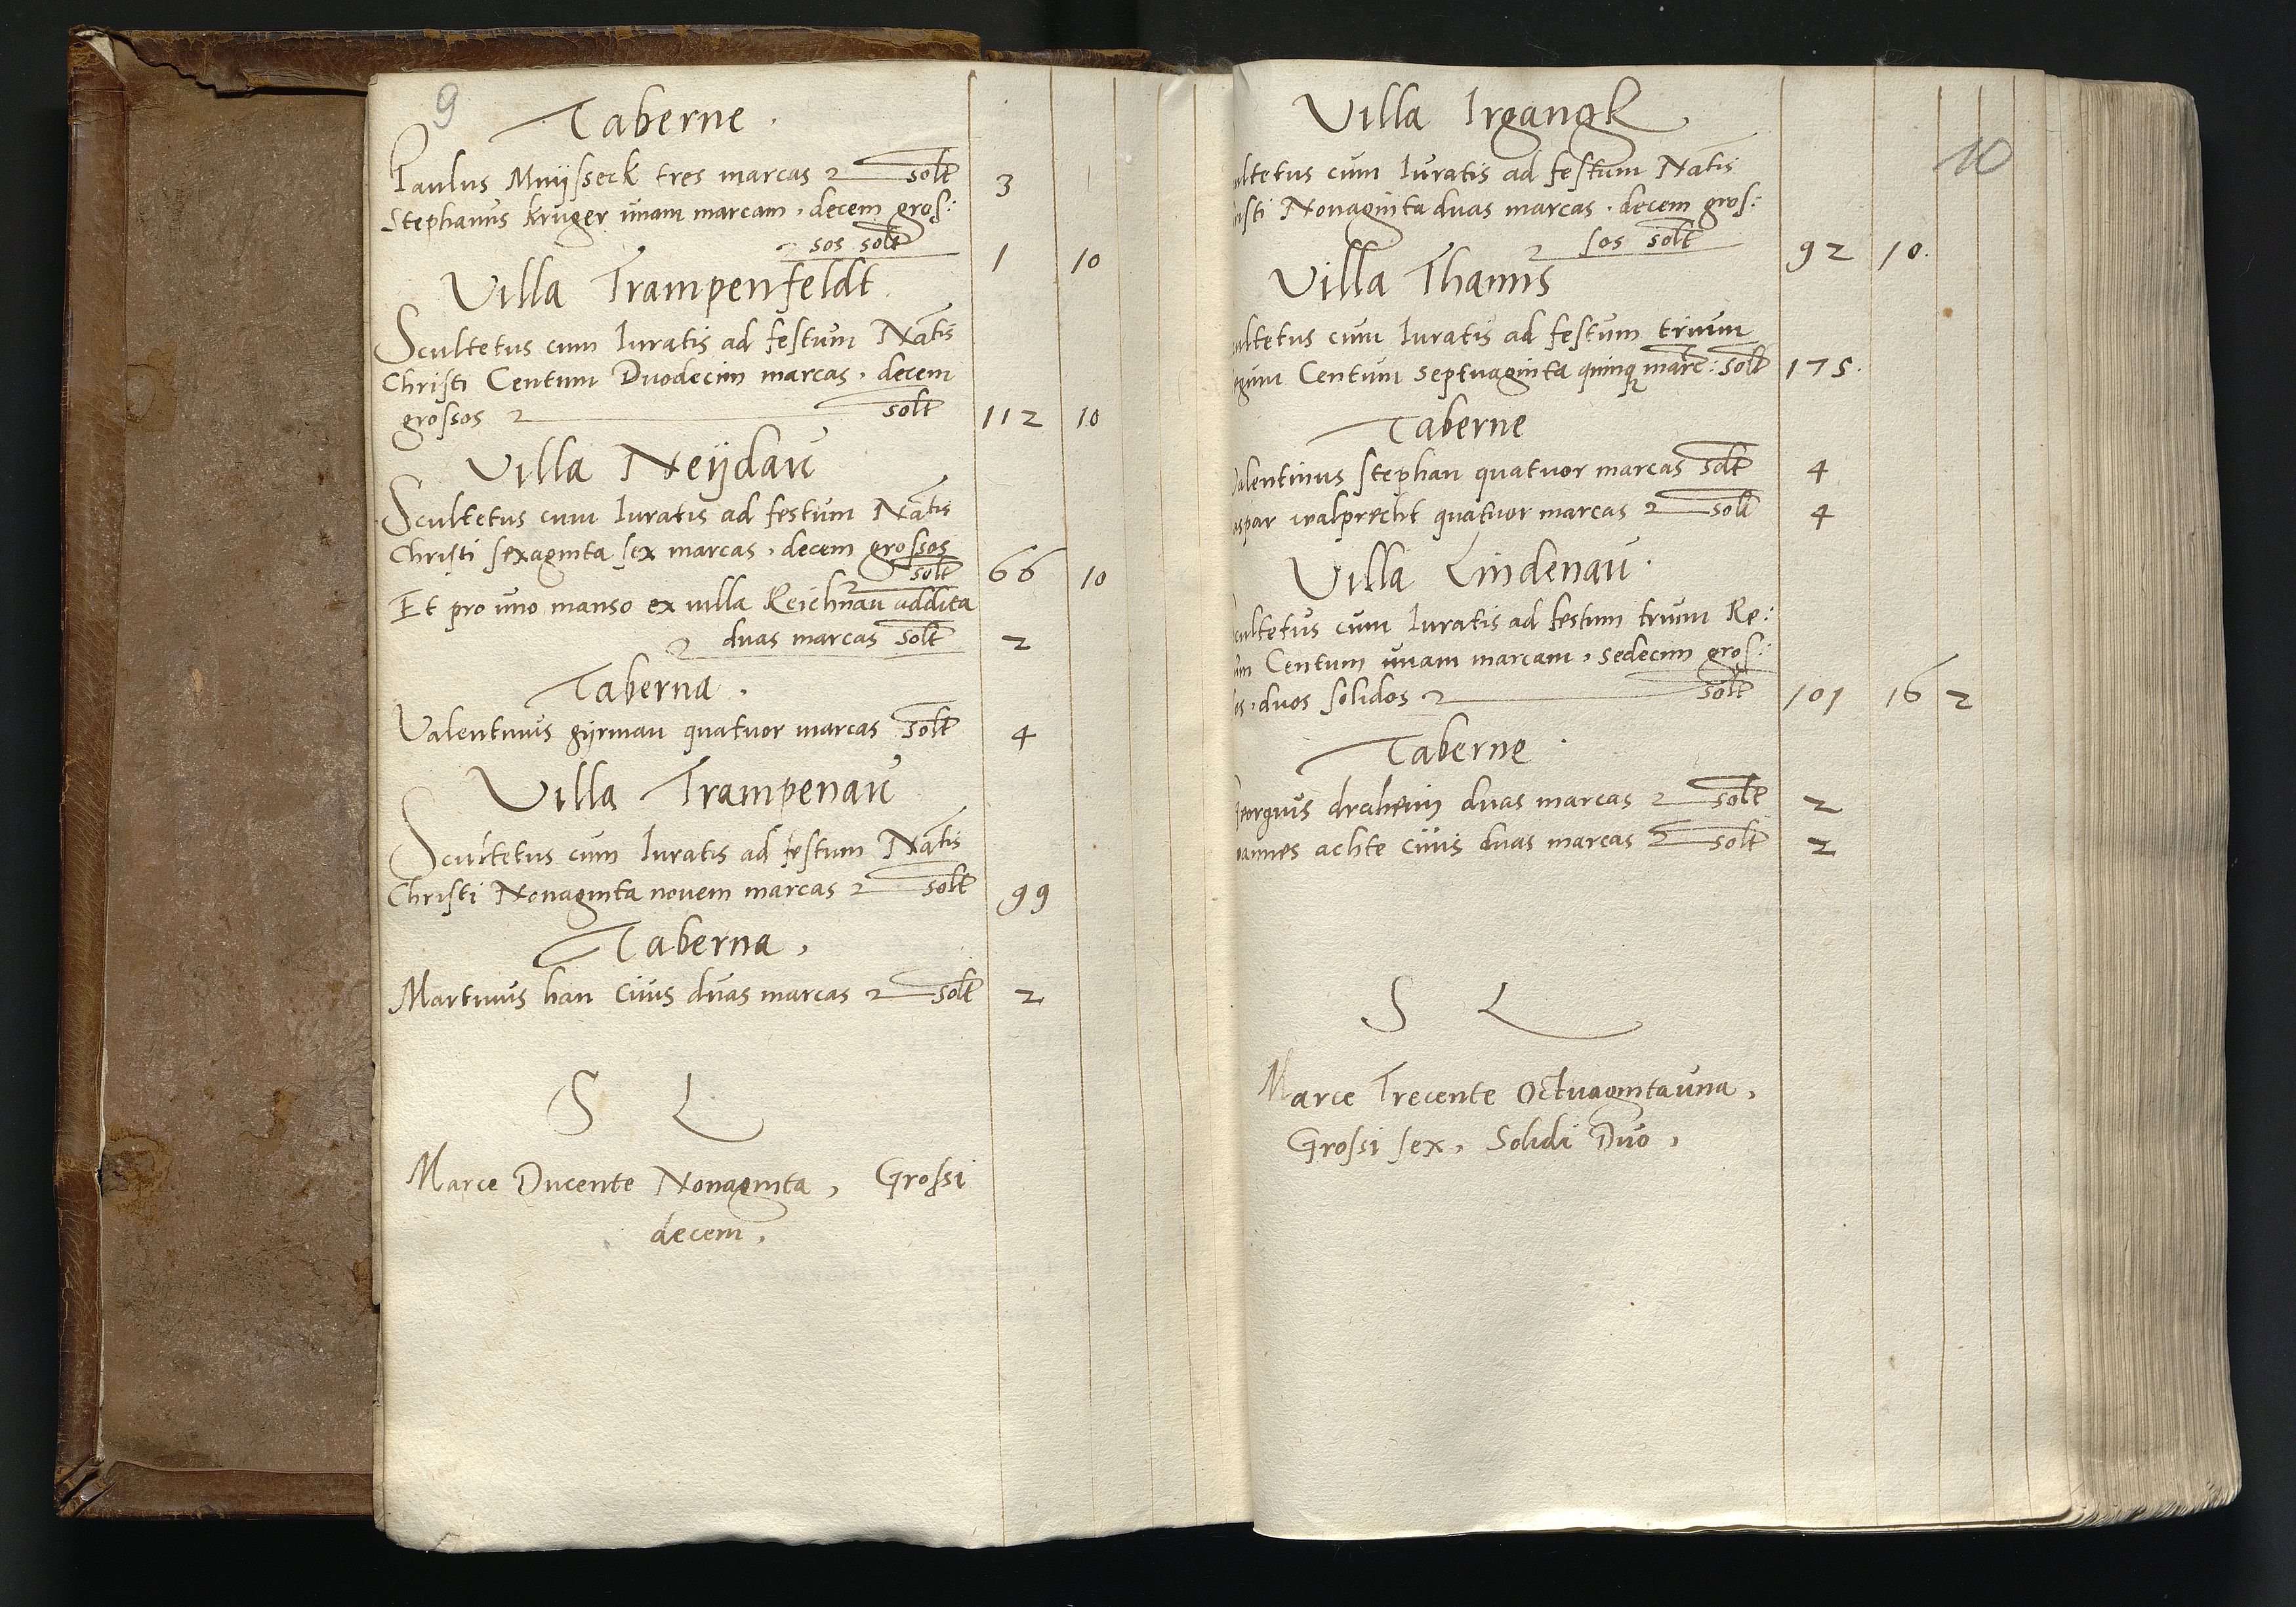 9
Taberne.
Paulus Mnijsseck tres marcas solt 3
Stephanus kruger unam marcam, decem gros:
sos solt 1 10
Villa Trampenfeldt.
Scultetus cum Iuratis ad festum Natis
Christi Centum Duodecim marcas, decem
grossos solt 112 10
Villa Neijdau
Scultetus cum Iuratis ad festum Natis
Christi sexaginta sex marcas, decem grossos
solt 66 10
Et pro uno manso ex villa Reichnau addita
duas marcas solt 2
Taberna.
Valentinus gijrman quatuor marcas solt 4
Villa Trampenau
Scultetus cum Iuratis ad festum Natis
Christi Nonaginta novem marcas solt 99
Taberna,
Martinus han Civis duas marcas solt 2
S L
Marce Ducente Nonaginta, Grossi
decem,
10
Villa Irgangk
ultetus cum Iuratis ad festum Natis
isti Nonaginta duas marcas, decem gros:
sos solt 92 10.
Villa Thanns
ultetus cum Iuratis ad festum trium
egum Centum septuaginta quinq marc: solt 175.
Taberne
Valentinus stephan quatuor marcas solt 4
aspar walprecht quatuor marcas solt 4
Villa Lindenau.
cultetus cum Iuratis ad festum trium Re:
um Centum unam marcam, sedecim gros:
os, duos solidos solt 101 16 2
Taberne.
Georgius draheim duas marcas solt 2
oannes achte civis duas marcas solt 2
S L
Marce Trecente Octuagintauna,
Grossi sex, Solidi Duo,